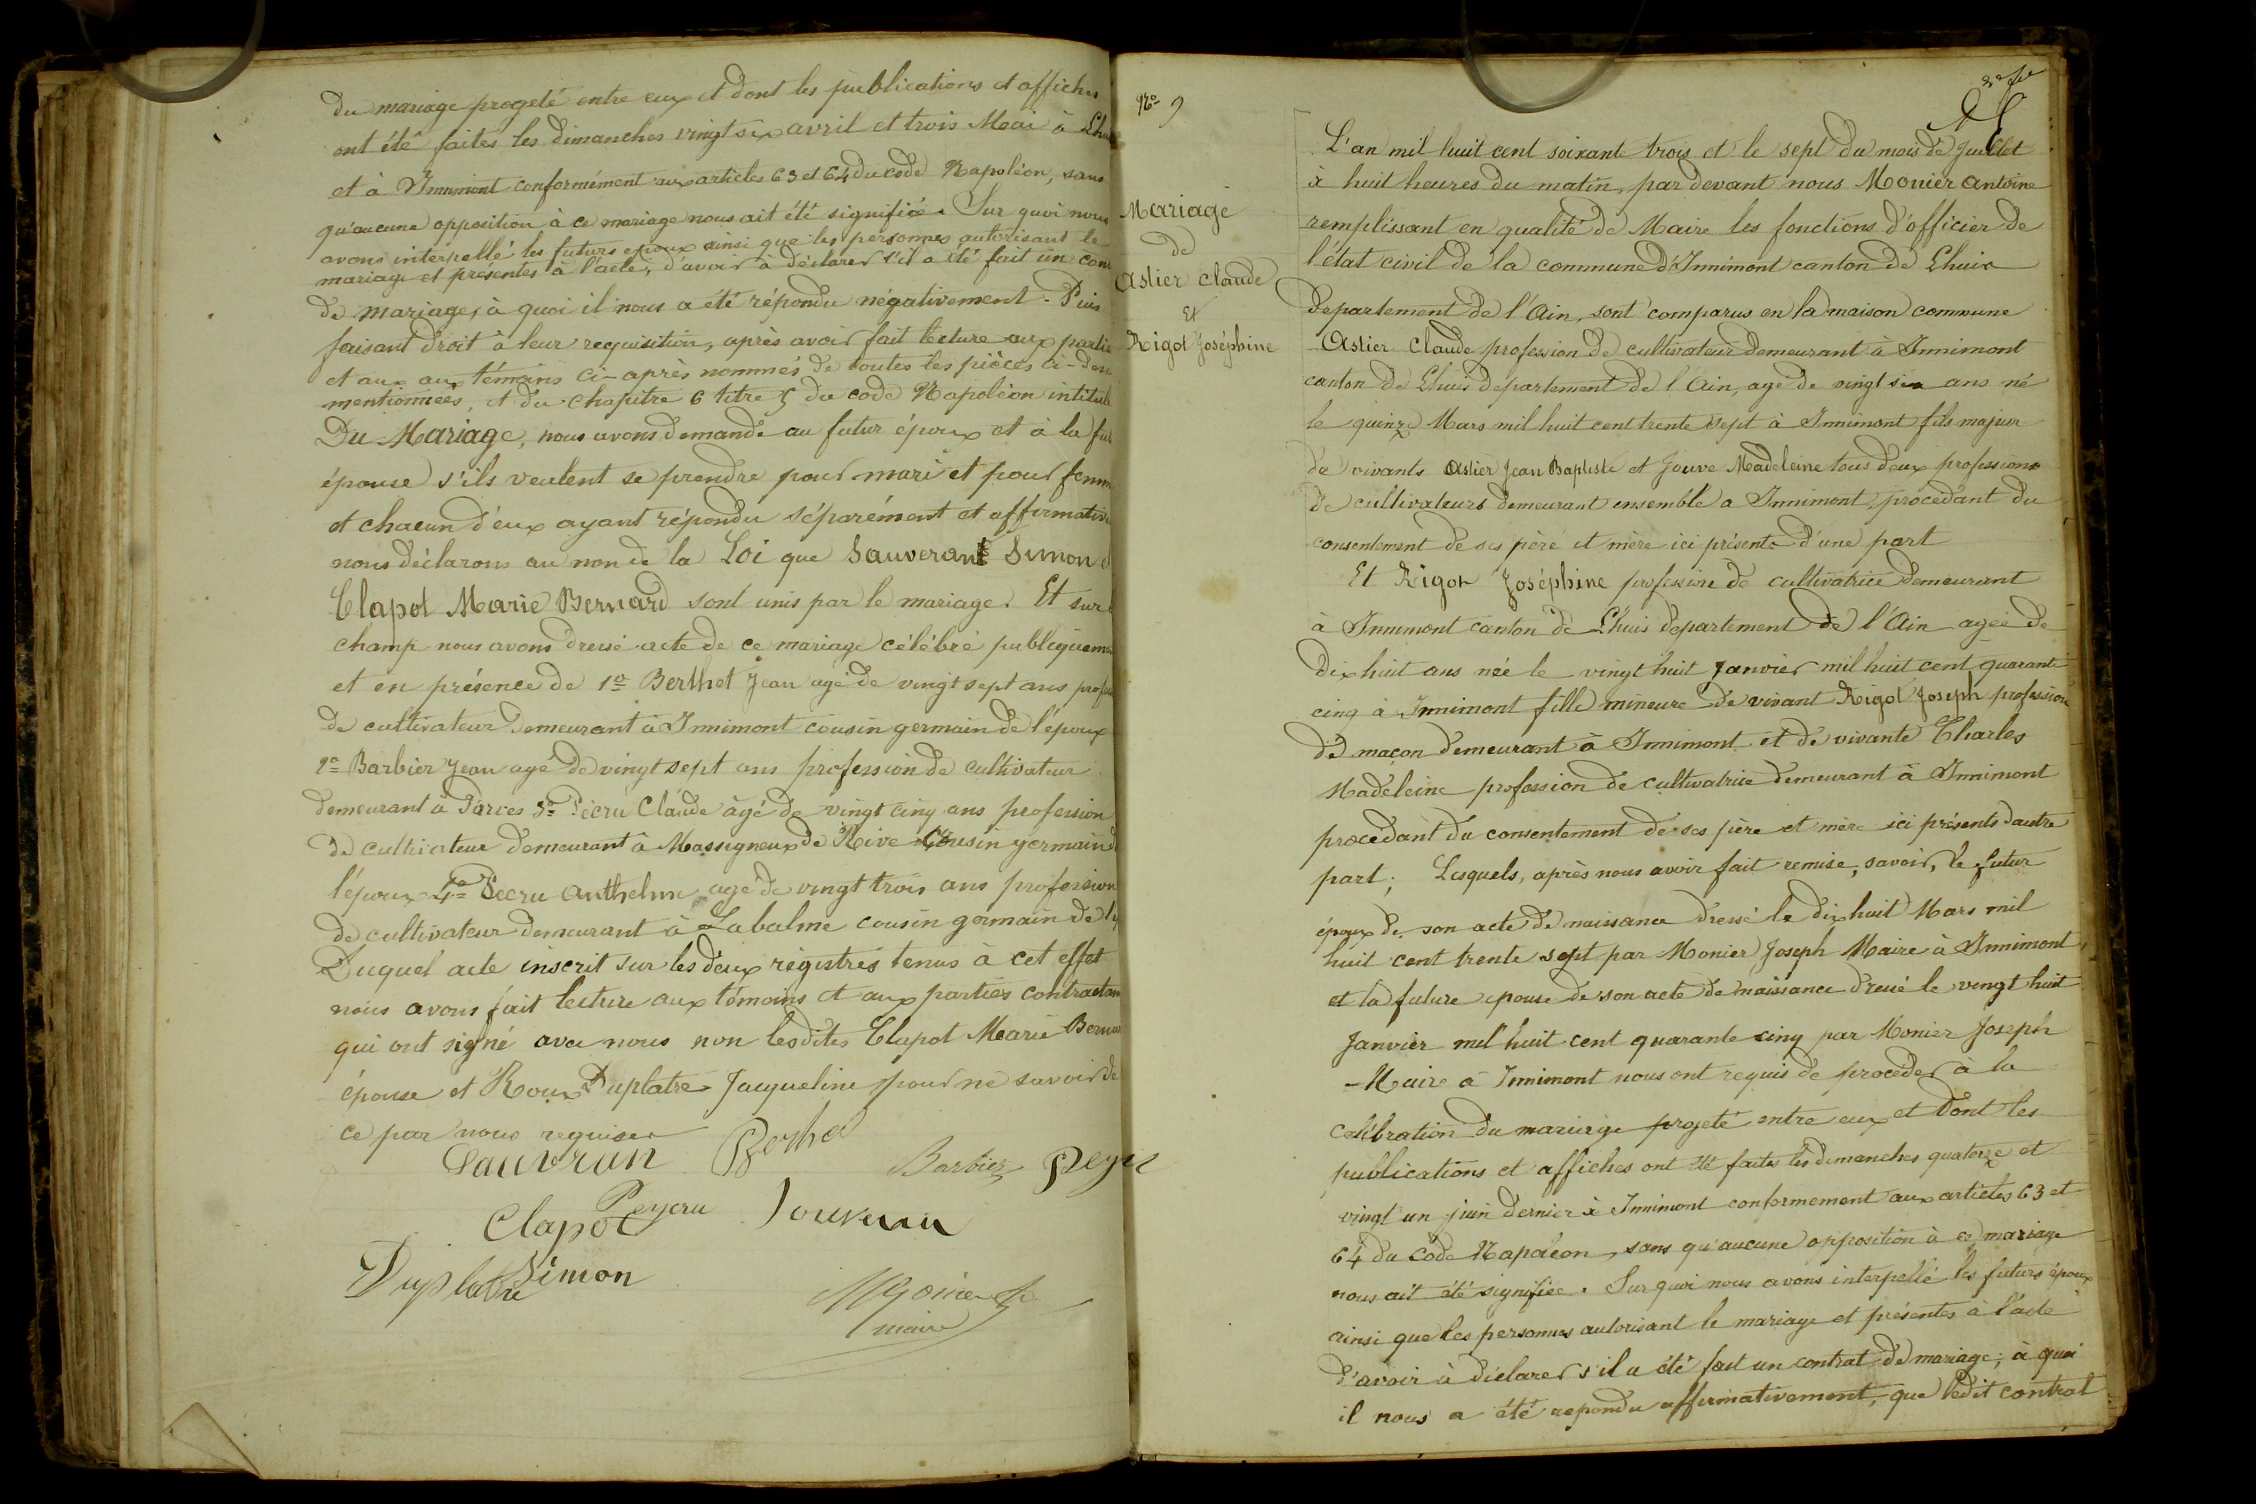 du mariage progeté entre eux et dont les publications et affiches
ont été faites les dimanches vingt six avril et trois Mai à Lhuis
et à Innimont conformément aux articles 63 et 64 du code Napoléon, sans
qu'aucune opposition à ce mariage nous ait été signifiée. Sur quoi nous
avons interpellé les futurs epoux ainsi que les personnes autorisant le
mariage et présentes à l'acte, d'avoir à déclarer s'il a été fait un cont
de mariage, à quoi il nous a été répondu négativement. Puis
faisant droit à leur requisition, après avoir fait lecture aux partie
et aux aux témoins ci-après nommés de toutes les pièces ci-dess
mentionnées, et du chapitre 6 titre 5 du code Napoléon intitulé
Du Mariage, nous avons demandé au futur époux et à la fut
épouse s'ils veulent se prendre pour mari et pour femm
et chacun d'eux ayant répondu séparément et affirmativ
nous déclarons au nom de la Loi que Sauverant Simon et
Clapot Marie Bernard sont unis par le mariage. Et sur l
champ nous avons dressé acte de ce mariage célébré publiquem
et en présence de 1o Berthet Jean agé de vingt sept ans profes
de cultivateur demeurant à Innimont cousin germain de l'époux
2o Barbier Jean agé de vingt sept ans profession de cultivateur
demeurant à Parves 3o Pécru Claude âgé de vingt cinq ans profession
de cultivateur demeurant à Massigneux de Rive cousin germain d
l'époux 4o Pécru Anthelme agé de vingt trois ans profession
de cultivateur demeurant à Labalme cousin germain de l'é
Duquel acte inscrit sur les deux régistres tenus à cet effet
nous avons fait lecture aux témoins et aux parties contractan
qui ont signé avec nous non lesdites Clapot Marie Bernar
épouse et Roux Duplatre Jacqueline pour ne savoir de
ce par nous requises
Sauvran Berthet
Barbier Peyc
Clapot Peycru
Duplatre Simon
Monier
maire
No 9
Mariage
de
Astier Claude
Et
Rigot Joséphine
L'an mil huit cent soixante trois et le sept du mois de Juillet
à huit heures du matin, par devant nous Monier Antoine
remplissant en qualité de Maire les fonctions d'officier de
l'état civil de la commune d'Innimont canton de Lhuis
departement de l'Ain, sont comparus en la maison commune
Astier Claude profession de cultivateur demeurant à Innimont
canton de Lhuis departement de l'Ain, agé de vingt six ans né
le quinze Mars mil huit cent trente sept à Innimont fils majeur
de vivants Astier Jean Baptiste et Jouve Madeleine tous deux professions
de cultivateurs demeurant ensemble a Innimont, procédant du
consentement de ses père et mère ici présents d'une part
Et Rigot Joséphine profession de cultivatrice demeurant
à Innimont canton de Lhuis departement de l'Ain agée de
dix huit ans née le vingt huit Janvier mil huit cent quarante
cinq à Innimont fille mineure de vivant Rigot Joseph profession
de maçon demeurant à Innimont et de vivante Charles
Madeleine profession de cultivatrice demeurant à Innimont
procédant du consentement de ses père et mère ici présents d'autre
part; Lesquels, après nous avoir fait remise, savoir, le futur
époux de son acte de naissance dressé le dix huit Mars mil
huit cent trente sept par Monier Joseph Maire à Innimont,
et la future epouse de son acte de naissance dressé le vingt huit
Janvier mil huit cent quarante cinq par Monier Joseph
Maire à Innimont nous ont requis de proceder à la
celébration du mariage projeté entre eux et dont les
publications et affiches ont été faites les dimanches quatorze et
vingt un juin dernier à Innimont conformement aux articles 63 et
64 du code Napoléon, sans qu'aucune opposition à ce mariage
nous ait été signifiée. Sur quoi nous avons interpellé les futurs époux
ainsi que les personnes autorisant le mariage et présentes à l'acte
d'avoir à déclarer s'il a été fait un contrat de mariage; à quoi
il nous a été repondu affirmativement, que ledit contrat